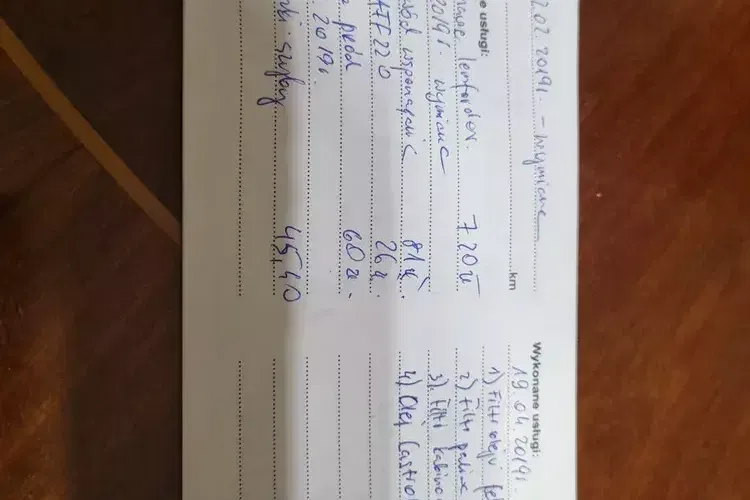 202.2019r. - wymiana
km
ne usługi:
lemforder. 720 zł
2019r. wymiana
wspomagania 81 zł.
ATF 220 26 zł.
przód 60 zł.
2019r.
szyby 45,40
Wykonane usługi:
19.04.2019r
1) Filtr oleju
2) Filtr paliwa
3) Filtr kabino
4) Olej Castro